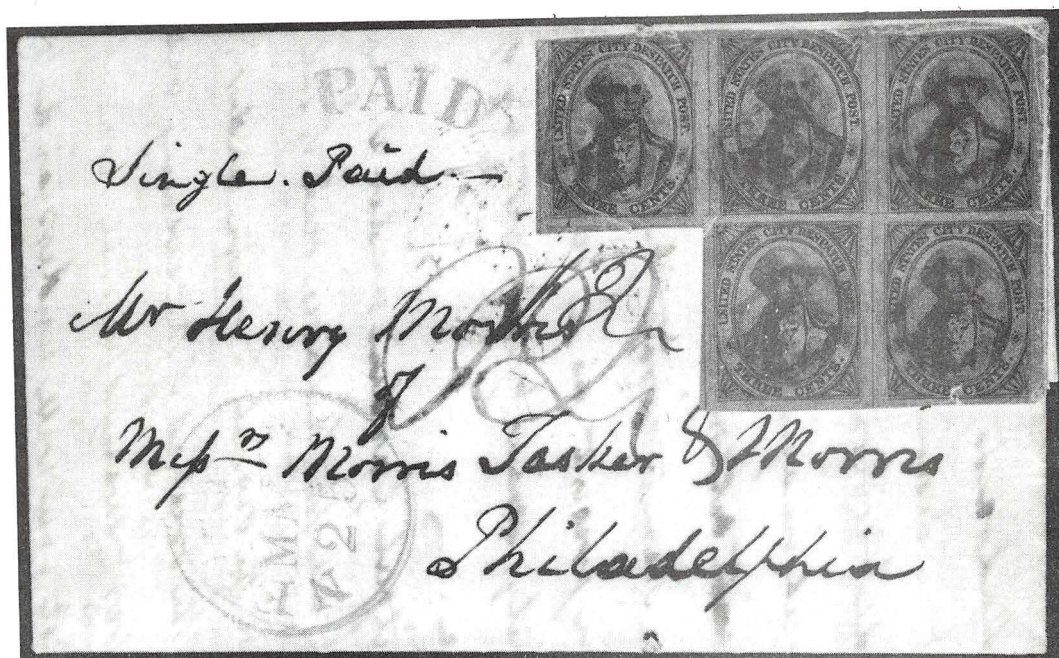 UNITED STATES CITY DESPATCH POST.
THREE CENTS.
UNITED STATES CITY DESPATCH POST.
THREE CENTS.
UNITED STATES CITY DESPATCH POST.
THREE CENTS.
PAID
Single. Paid
UNITED STATES CITY DESPATCH POST.
THREE CENTS.
UNITED STATES CITY DESPATCH POST.
THREE CENTS.
Mr Henry Morris
of
Messrs Morris Tasker & Morris
Philadelphia